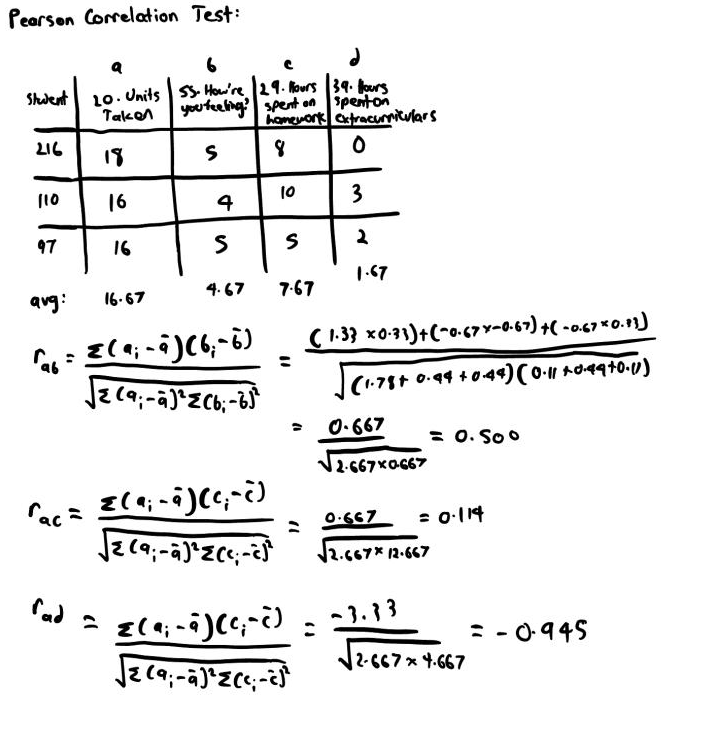 Pearson Correlation Test:
a b c d
Student 20. Units Taken 55. How're you feeling? 29. Hours spent on homework 39. Hours spent on extracurriculars
216 18 5 8 0
110 16 4 10 3
97 16 5 5 2
avg: 16.67 4.67 7.67 1.67
r_ab = Σ(a_i - ā)(b_i - b̄) / √Σ(a_i - ā)² Σ(b_i - b̄)² = (1.33 × 0.33) + (-0.67 × -0.67) + (-0.67 × 0.33) / √(1.78 + 0.44 + 0.44)(0.11 + 0.44 + 0.11)
= 0.667 / √2.667 × 0.667 = 0.500
r_ac = Σ(a_i - ā)(c_i - c̄) / √Σ(a_i - ā)² Σ(c_i - c̄)² = 0.667 / √2.667 × 12.667 = 0.114
r_ad = Σ(a_i - ā)(c_i - c̄) / √Σ(a_i - ā)² Σ(c_i - c̄)² = -3.33 / √2.667 × 4.667 = -0.945